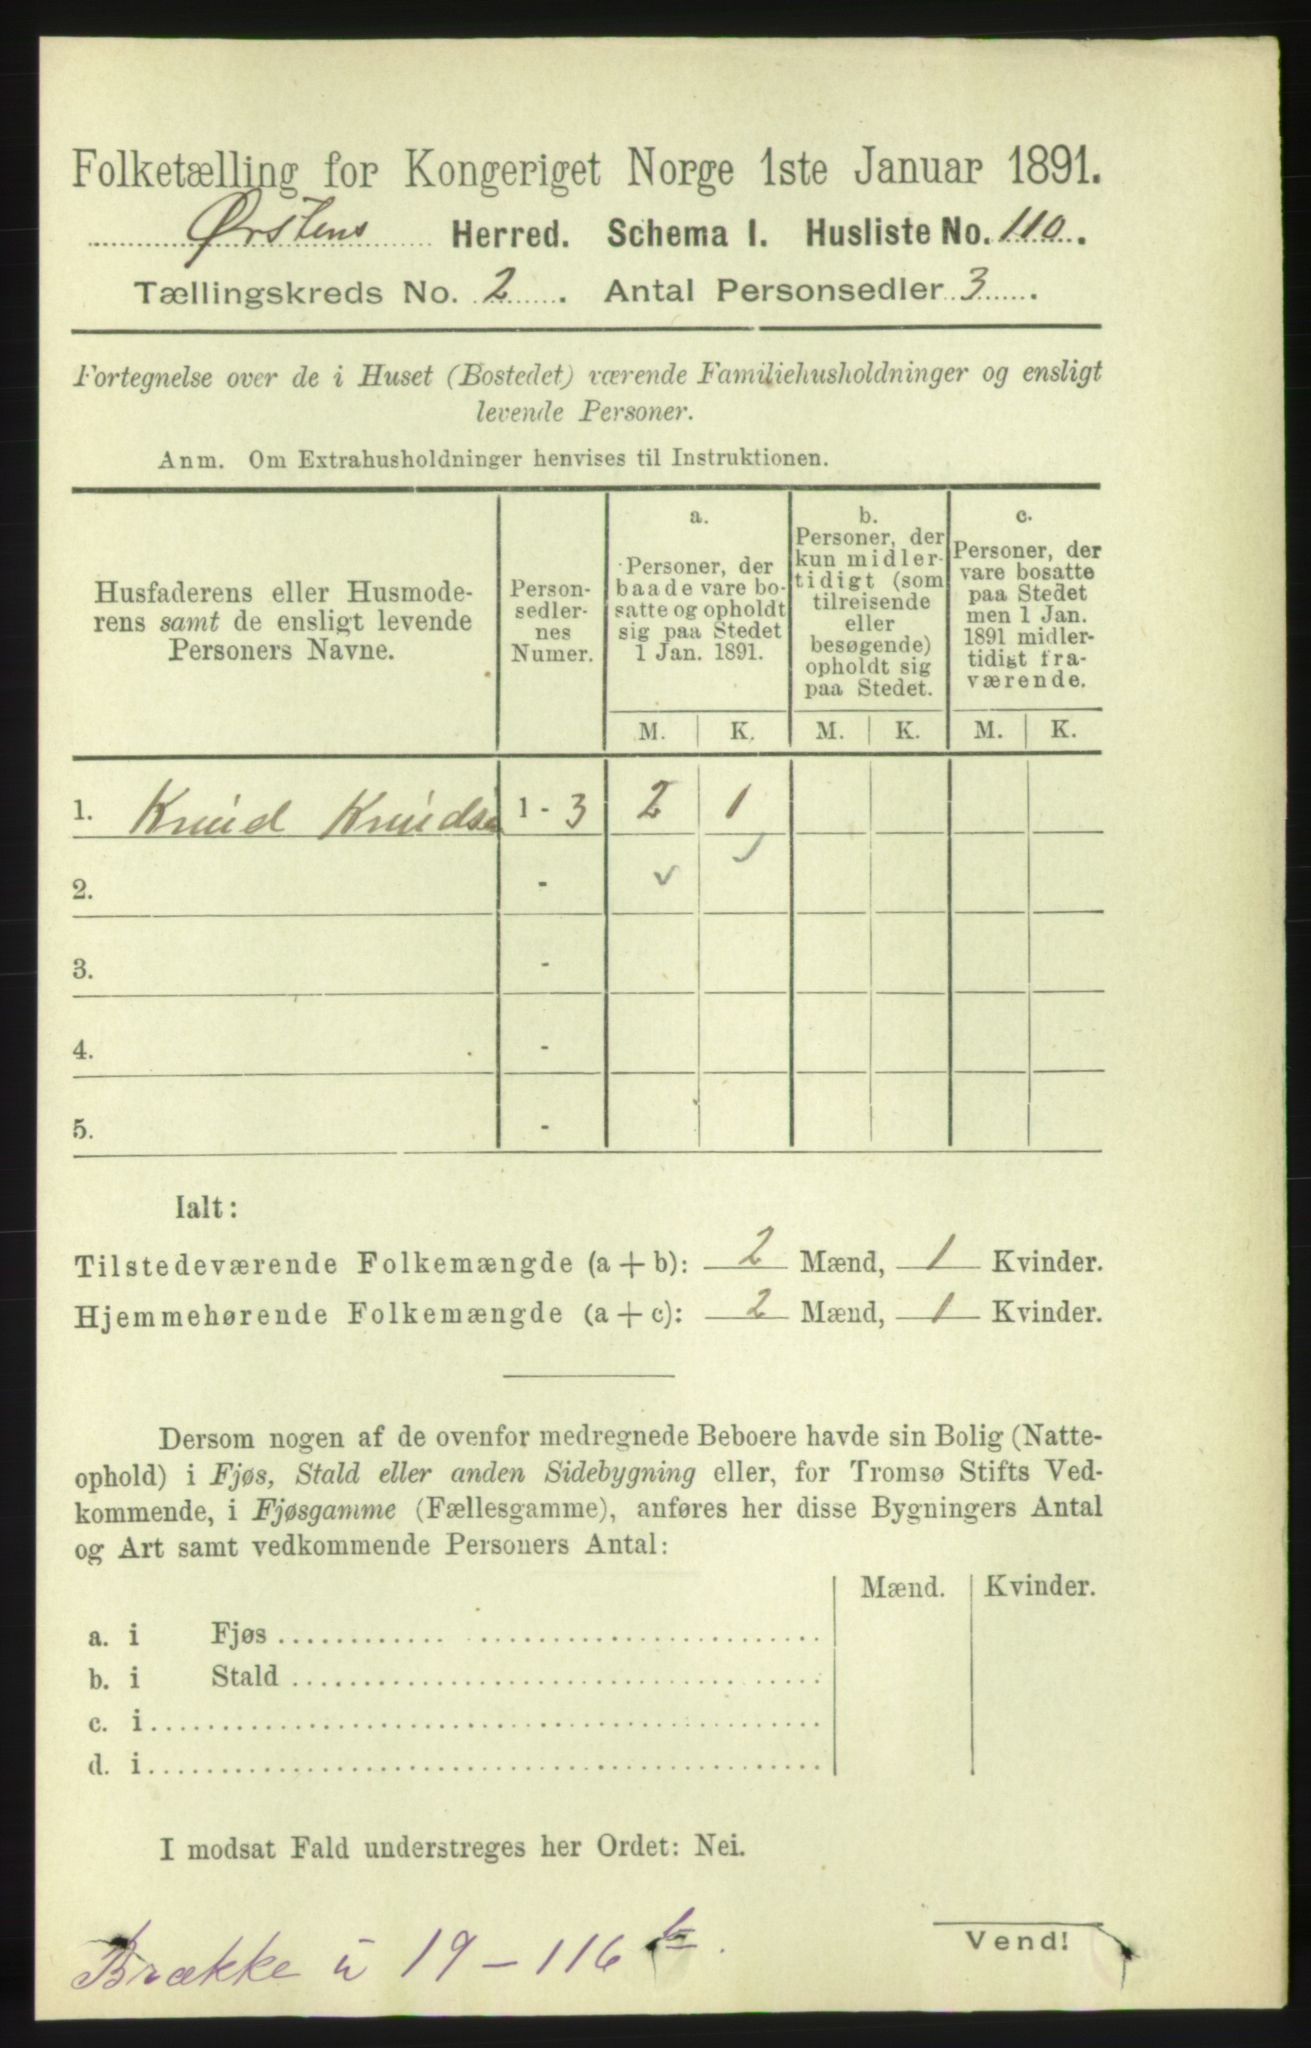 Folketælling for Kongeriget Norge 1ste Januar 1891.
Ørstens Herred. Schema I. Husliste No. 110.
Tællingskreds No. 2. Antal Personsedler 3.
Fortegnelse over de i Huset (Bostedet) værende Familiehusholdninger og ensligt
levende Personer.
Anm. Om Extrahusholdninger henvises til Instruktionen.
Husfaderens eller Husmode-
rens samt de ensligt levende
Personers Navne.
Person-
sedler-
nes
Numer.
a.
Personer, der
baade vare bo-
satte og opholdt
sig paa Stedet
1 Jan. 1891.
b.
Personer, der
kun midler-
tidigt (som
tilreisende
eller
besøgende)
opholdt sig
paa Stedet.
c.
Personer, der
vare bosatte
paa Stedet
men 1 Jan.
1891 midler-
tidigt fra-
værende.
M. K. M. K. M. K.
1. Knud Knudsen 1 - 3 2 1
2. - ✓ ✓
3. -
4. -
5. -
Ialt:
Tilstedeværende Folkemængde (a + b): 2 Mænd, 1 Kvinder.
Hjemmehørende Folkemængde (a + c): 2 Mænd, 1 Kvinder.
Dersom nogen af de ovenfor medregnede Beboere havde sin Bolig (Natte-
ophold) i Fjøs, Stald eller anden Sidebygning eller, for Tromsø Stifts Ved-
kommende, i Fjøsgamme (Fællesgamme), anføres her disse Bygningers Antal
og Art samt vedkommende Personers Antal:
Mænd. Kvinder.
a. i Fjøs
b. i Stald
c. i
d. i
I modsat Fald understreges her Ordet: Nei.
Vend!
Brække u 19 - 116 b